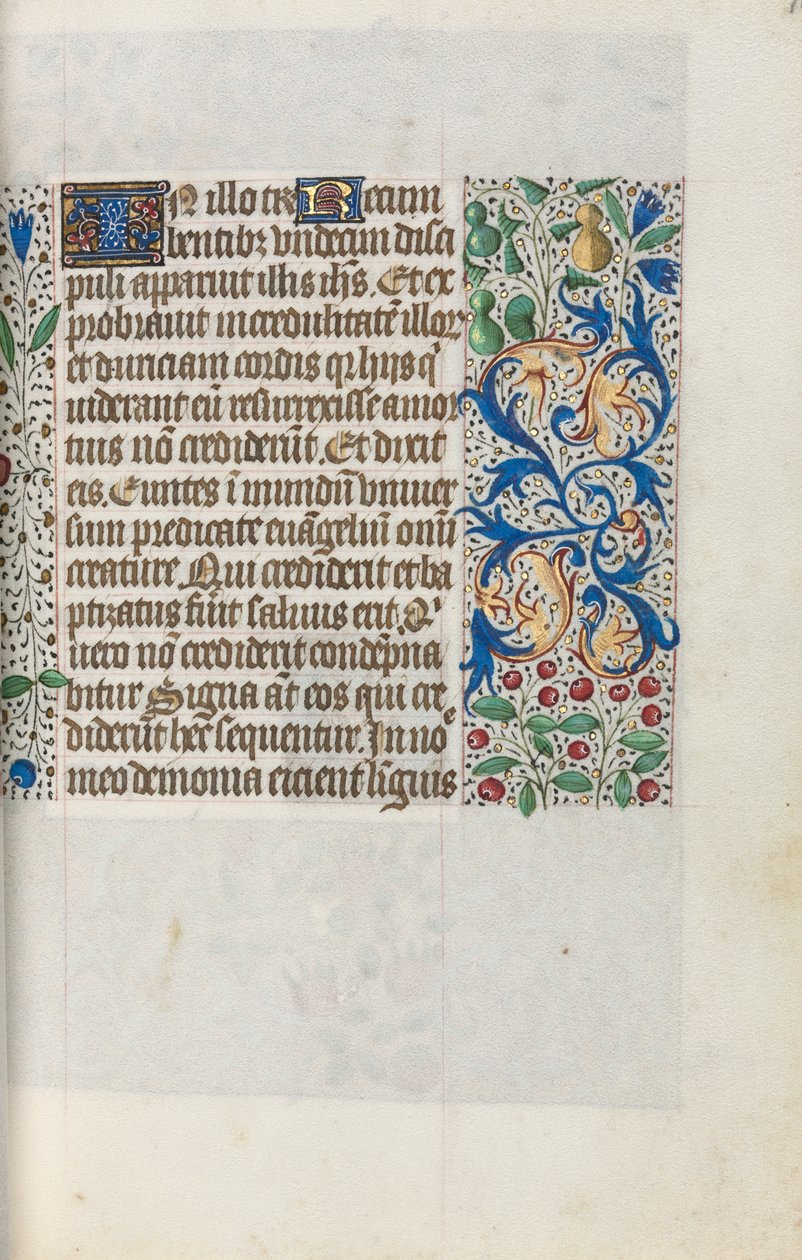 IN illo tꝑe Recum
bentibꝫ vndecim disci
puli apparuit illis ihs̄. Et ex
probrauit incredulitatē illoꝝ
et duriciam cordis qꝛ hijs qͥ
uiderant eū resurrexisse a mor
tuis nō credider̄ūt. Et dixit
eis. Euntes ī mundū vniuer
sum predicate euāgeliū omī
creature Qui crediderit et ba
ptizatus fūit saluus erit. Qͥ
uero nō crediderit condēpna
bitur Signa āt eos qui cre
diderūt hec sequentur. In noīe
meo demonia eicient līguis